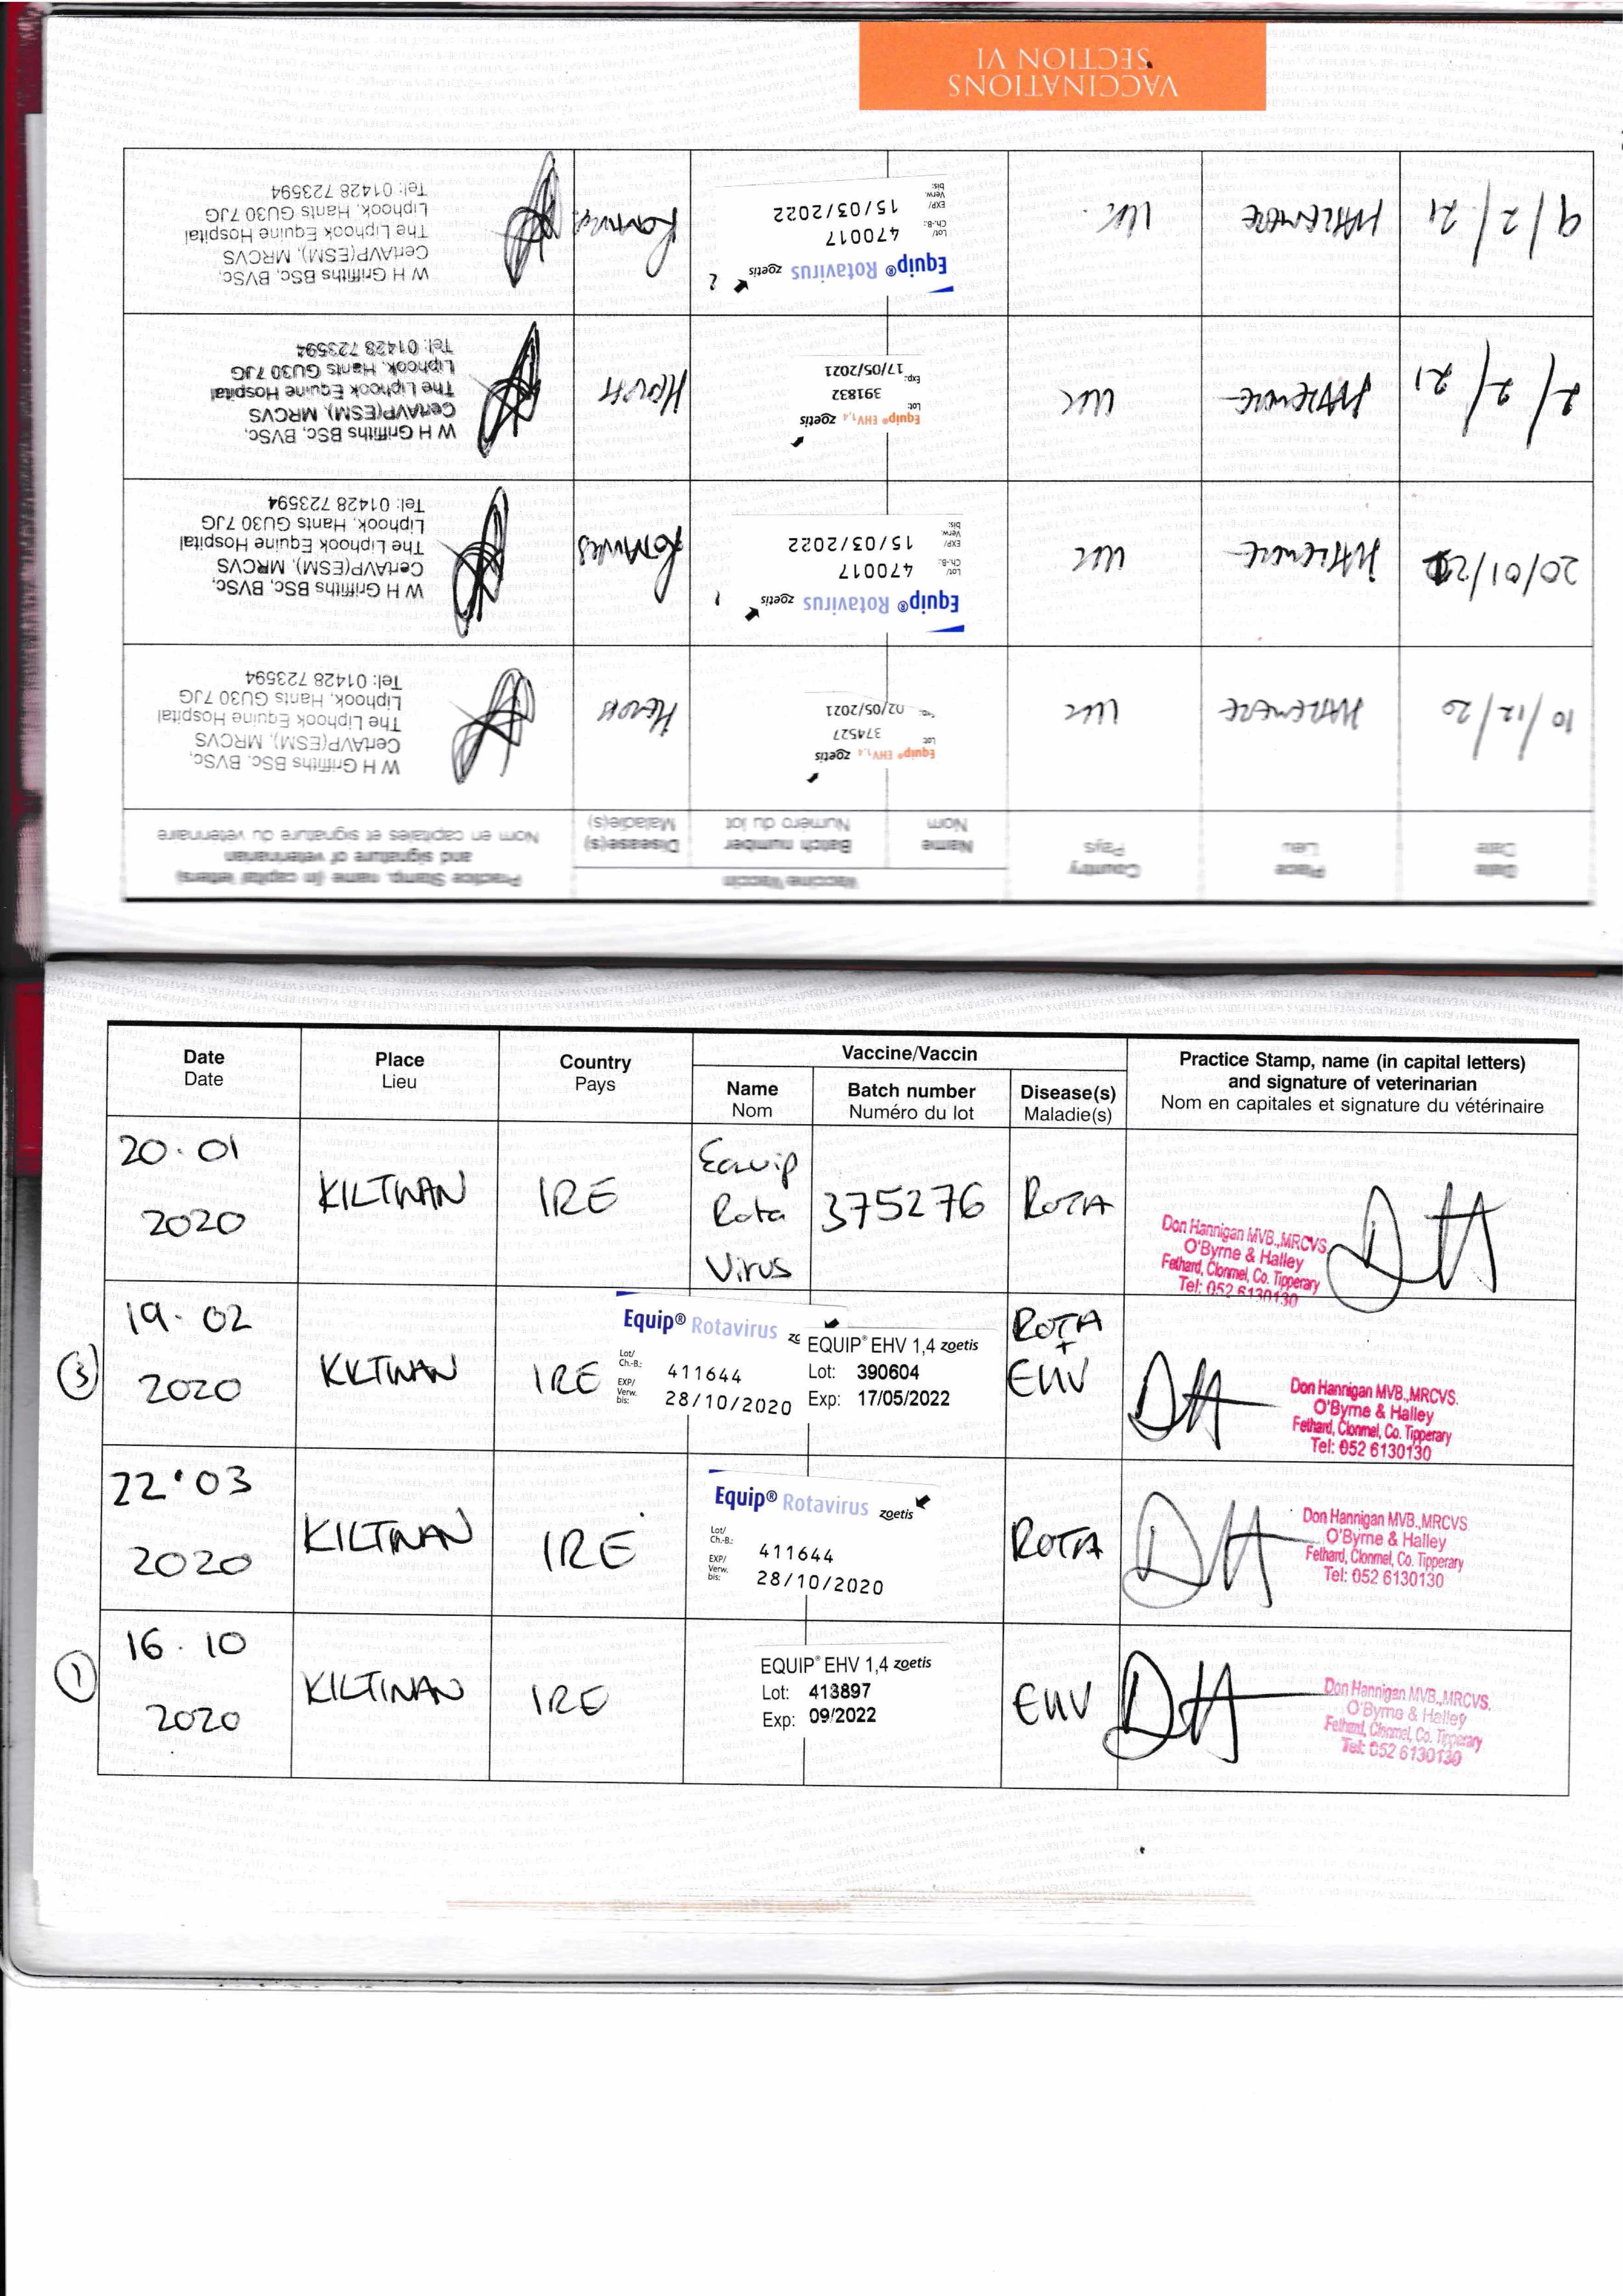 VACCINATIONS
SECTION VI
Date
Date
Place
Lieu
Country
Pays
Vaccine/Vaccin
Name
Nom
Batch number
Numéro du lot
Disease(s)
Maladie(s)
Practice Stamp, name (in capital letters)
and signature of veterinarian
Nom en capitales et signature du vétérinaire
10/12/20
UK
Equip® EHV1,4 zoetis
Lot: 374527
02/05/2021
HERPES
W H Griffiths BSc, BVSc,
CertAVP(ESM), MRCVS
The Liphook Equine Hospital
Liphook, Hants GU30 7JG
Tel: 01428 723594
20/01/21
UK
Equip® Rotavirus zoetis
Lot/
Ch.-B.: 470017
EXP/
Verw.
bis: 15/03/2022
1
W H Griffiths BSc, BVSc,
CertAVP(ESM), MRCVS
The Liphook Equine Hospital
Liphook, Hants GU30 7JG
Tel: 01428 723594
2/2/21
UK
Equip® EHV1,4 zoetis
Lot: 391832
Exp: 17/05/2021
HERPES
W H Griffiths BSc, BVSc,
CertAVP(ESM), MRCVS
The Liphook Equine Hospital
Liphook, Hants GU30 7JG
Tel: 01428 723594
9/2/21
UK
Equip® Rotavirus zoetis
Lot/
Ch.-B.: 470017
EXP/
Verw.
bis: 15/03/2022
2
W H Griffiths BSc, BVSc,
CertAVP(ESM), MRCVS
The Liphook Equine Hospital
Liphook, Hants GU30 7JG
Tel: 01428 723594
Date
Date
Place
Lieu
Country
Pays
Vaccine/Vaccin
Name
Nom
Batch number
Numéro du lot
Disease(s)
Maladie(s)
Practice Stamp, name (in capital letters)
and signature of veterinarian
Nom en capitales et signature du vétérinaire
20.01
2020
KILTINAN
IRE
Equip
Rota
Virus
375276
ROTA
DH
Don Hannigan MVB.,MRCVS.
O'Byrne & Halley
Fethard, Clonmel, Co. Tipperary
Tel: 052 6130130
3
19.02
2020
KILTINAN
IRE
Equip® Rotavirus
Lot/
Ch.-B.: 411644
EXP/
Verw.
bis: 28/10/2020
EQUIP® EHV 1,4 zoetis
Lot: 390604
Exp: 17/05/2022
ROTA
+
EHV
DH
Don Hannigan MVB.,MRCVS.
O'Byrne & Halley
Fethard, Clonmel, Co. Tipperary
Tel: 052 6130130
22.03
2020
KILTINAN
IRE
Equip® Rotavirus zoetis
Lot/
Ch.-B.: 411644
EXP/
Verw.
bis: 28/10/2020
ROTA
DH
Don Hannigan MVB.,MRCVS.
O'Byrne & Halley
Fethard, Clonmel, Co. Tipperary
Tel: 052 6130130
1
16.10
2020
KILTINAN
IRE
EQUIP® EHV 1,4 zoetis
Lot: 413897
Exp: 09/2022
EHV
DH
Don Hannigan MVB.,MRCVS.
O'Byrne & Halley
Fethard, Clonmel, Co. Tipperary
Tel: 052 6130130